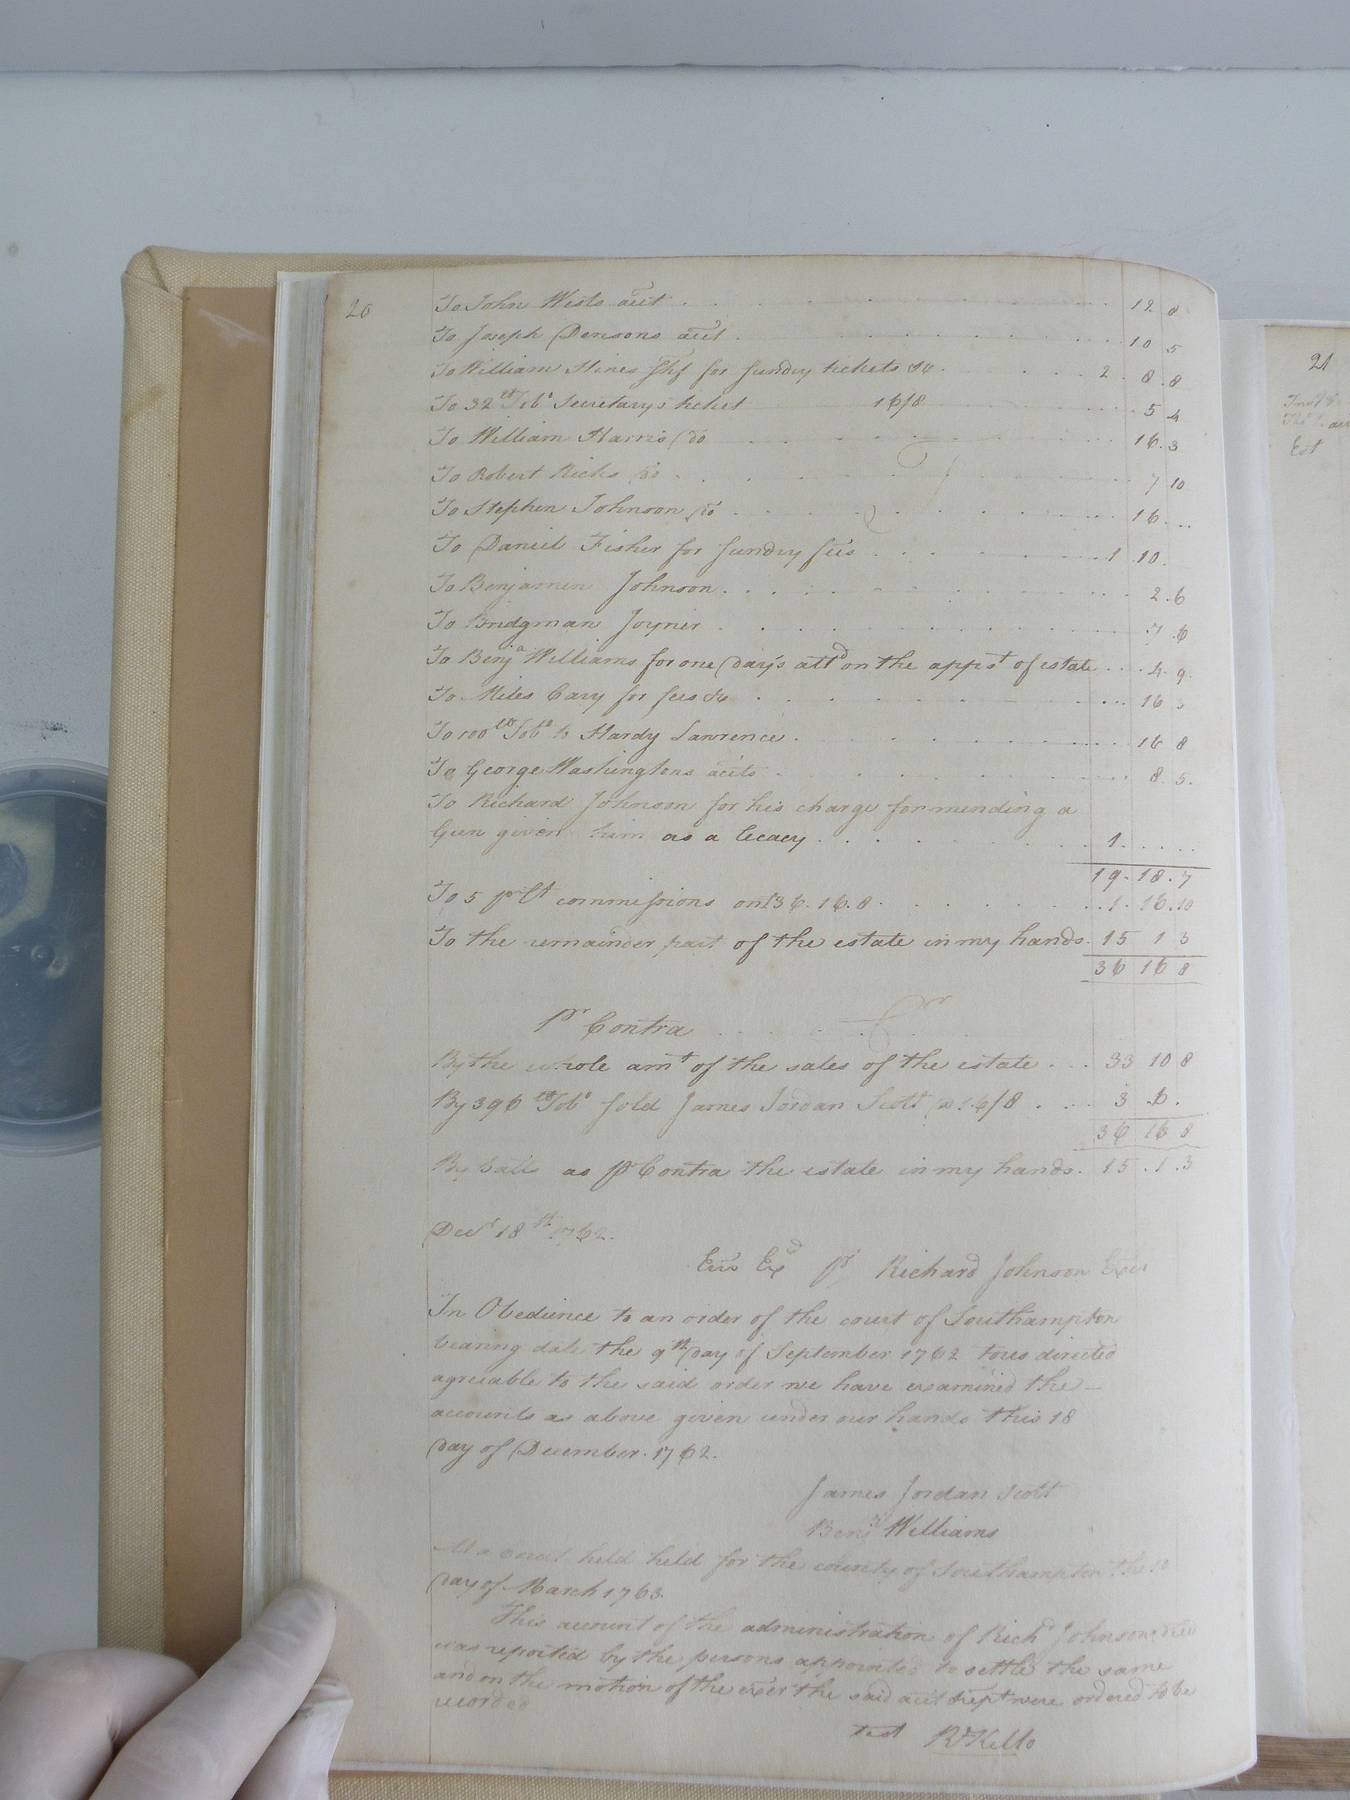 20
To John Wests acct . . . 12 8
To Joseph Densons acct . . . 10 5
To William Hines Shf for Sundry tickets &c . . . 2 . 8 . 8
To 32 lb Tobo Secretarys ticket 16/8 . . . 5 4
To William Harris do . . . 16 . 3
To Robert Ricks do . . . 7 10
To Stephen Johnson do . . . 16 . . .
To Daniel Fisher for sundry fees . . . 1 . 10 .
To Benjamin Johnson . . . 2 . 6
To Bridgman Joyner . . . 7 . 6
To Benja Williams for one days attd on the appst of estate . . . 4 . 9 .
To Miles Cary for fees &c . . . 16 3
To 100 lb Tobo to Hardy Lawrence . . . 16 8
To George Washingtons accts . . . 8 . 5 .
To Richard Johnson for his charge for mending a
Gun given him as a legacy . . . 1 . . . .
19 . 18 . 7
To 5 pr Ct commissions on £36 . 16 . 8 . . . 1 . 16 . 10
To the remainder part of the estate in my hands . 15 1 3
36 16 8
Pr Contra . . . Cr
By the whole amt of the sales of the estate . . . 33 10 8
By 396 lb Tobo sold James Jordan Scott @ 16/8 . . . 3 . 6 .
36 16 8
By balle as pr Contra the estate in my hands . 15 . 1 . 3
Decr 18th 1762.
Ers Exd pr Richard Johnson Exer
In Obedience to an order of the court of Southampton
bearing date the 9th day of September 1762 to us directed
agreeable to the said order we have examined the
accounts as above given under our hands this 18
day of December . 1762 .
James Jordan Scott
Benja Williams
At a court held held for the county of Southampton the 10
day of March 1763.
This account of the administration of Richd Johnson decd
was reported by the persons appointed to settle the same
and on the motion of the exer the said acct & rept were ordered to be
recorded
test Rd Kello
21
Est